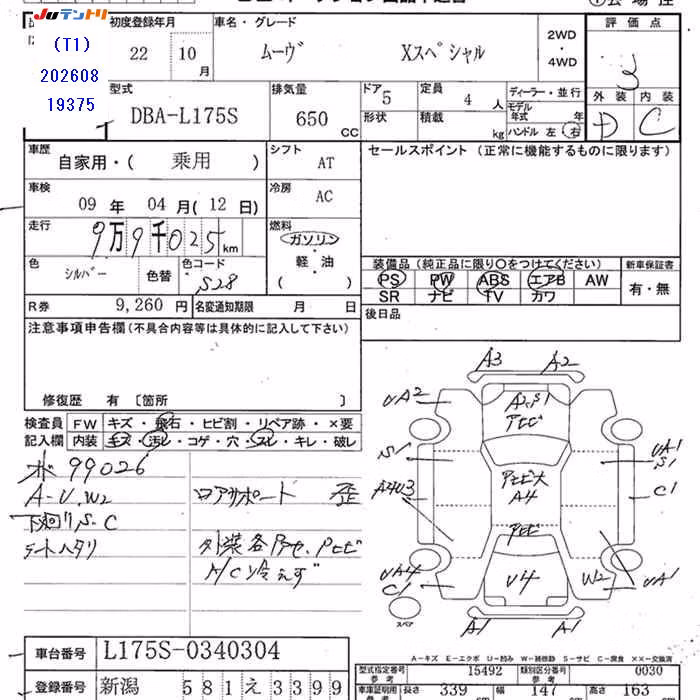 JUテントリ
(T1)
202608
19375
初度登録年月
22 10 月
車名・グレード
ムーヴ Xスペシャル
2WD
・
4WD
評価点
3
型式
DBA-L175S
排気量
650 CC
ドア 5
形状
定員 4 人
積載 kg
ディーラー・並行
モデル年式 年
ハンドル 左 右
外装 内装
D C
車歴
自家用・( 乗用 )
シフト
AT
セールスポイント (正常に機能するものに限ります)
車検
09 年 04 月 ( 12 日)
冷房
AC
走行
9万9千025 km
燃料
ガソリン
・
軽・油
( )
色
シルバー
色替
色コード
S28
装備品(純正品に限り○をつけてください)
新車保証書
PS PW ABS エアB AW
SR ナビ TV カワ
有・無
R券 9,260 円
名変通知期限 月 日
後日品
注意事項申告欄(不具合内容等は具体的に記入して下さい)
修復歴 有 〔箇所 〕
検査員
記入欄
FW キズ・飛石・ヒビ割・リペア跡・×要
内装 キズ・汚レ・コゲ・穴・スレ・キレ・破レ
99026
A-U.W2
下廻りS-C
シートハタリ
ロアサポート 歪
外装各
A/C冷えず
A3 A2
UA2
A2.S1
アヒビ
S1
UA1
S1
A4U3
C1
アヒビ大
A4
アヒビ
UA4
C1
U4
W2
UA1
スペア
A1 A1
車台番号 L175S-0340304
A-キズ E-エクボ U-凹み W-補修跡 S-サビ C-腐食 ××-交換済
型式指定番号 参考 15492
類別区分番号 参考 0030
登録番号 新潟 581 え 3399
車庫証明用 参考 長さ 339 幅 147 高さ 163